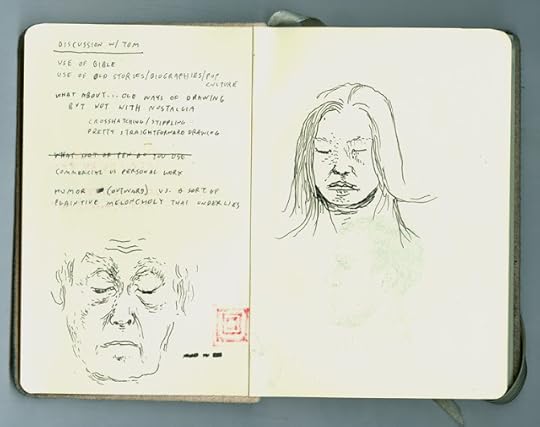 DISCUSSION W/ TOM
USE OF BIBLE
USE OF OLD STORIES/BIOGRAPHIES/POP
CULTURE
WHAT ABOUT... OLD WAYS OF DRAWING
BUT NOT WITH NOSTALGIA
CROSSHATCHING/STIPPLING
PRETTY STRAIGHTFORWARD DRAWING
WHAT SORT OF PEN DO YOU USE
COMMERCIAL VS PERSONAL WORK
HUMOR (OUTWARD) VS. A SORT OF
PLAINTIVE MELONCHOLY THAT UNDERLIES